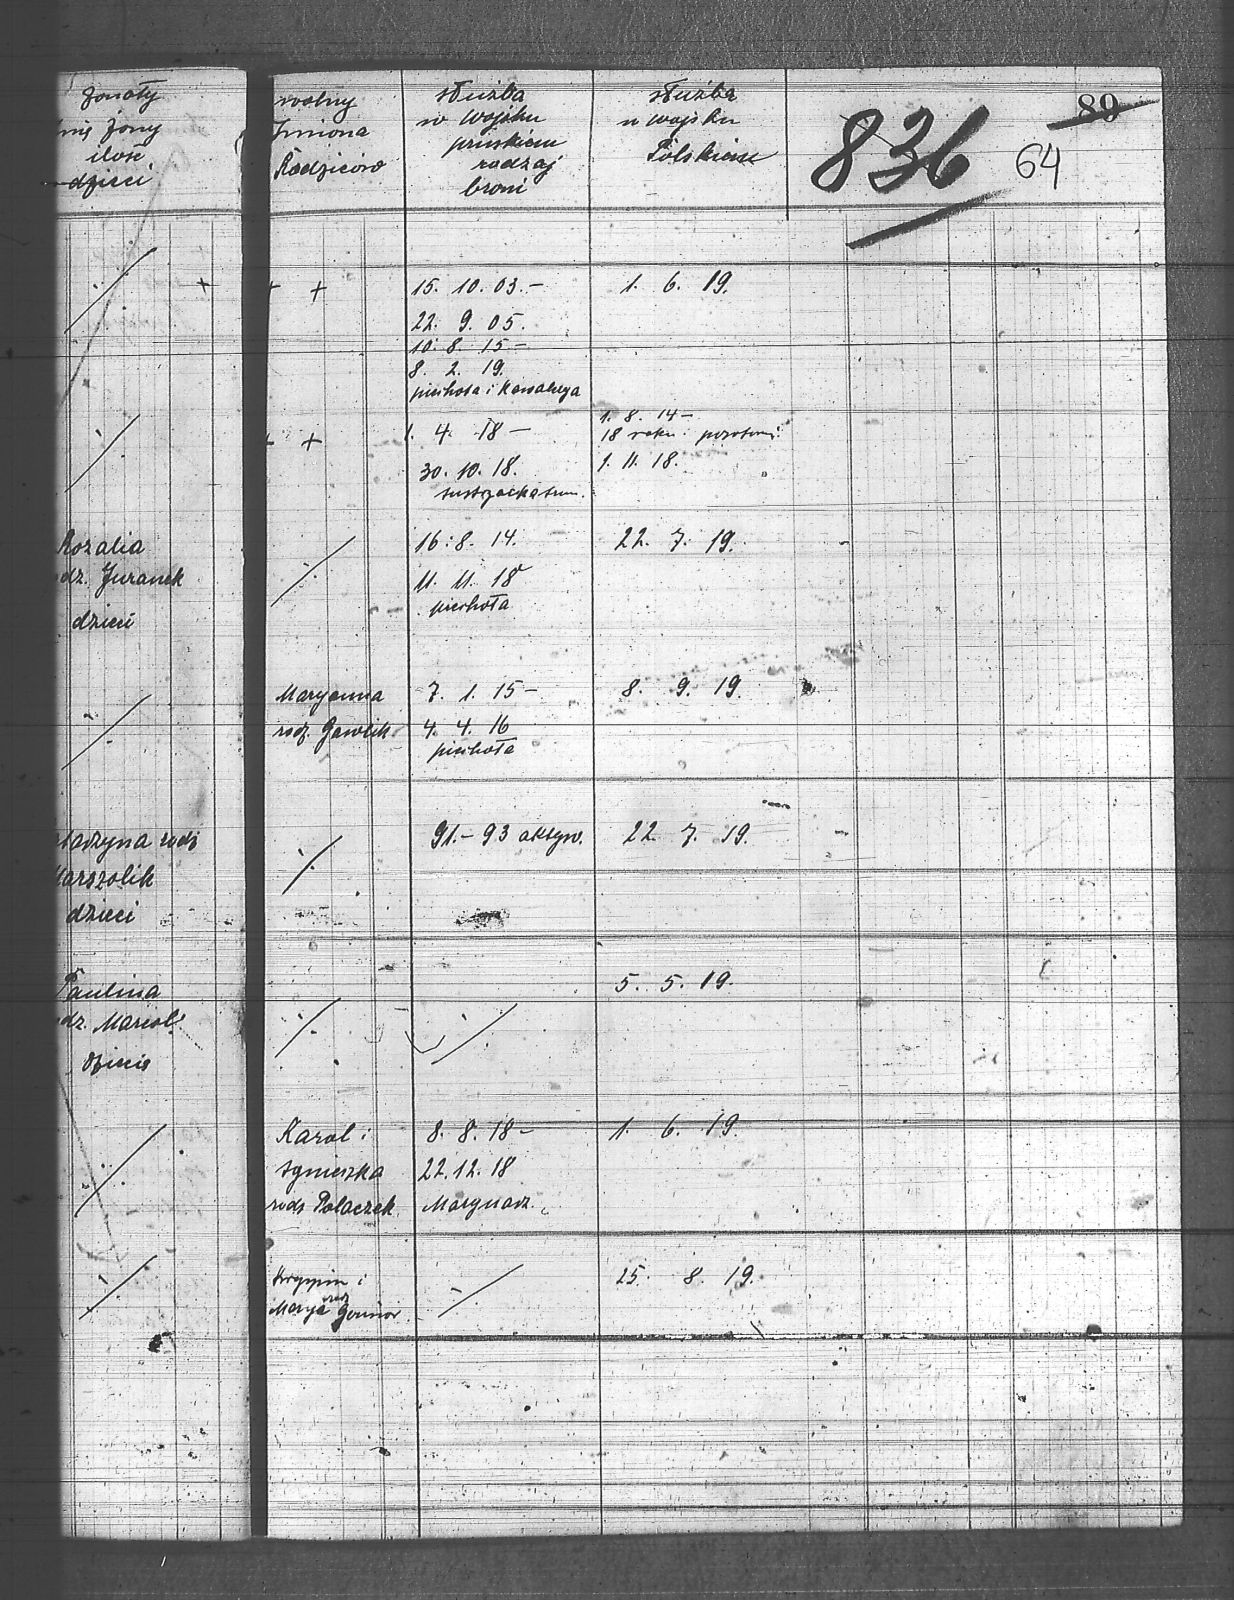 żonaty
imię żony
ilość
dzieci
wolny
Imiona
Rodziców
służba
w wojsku
pruskiem
rodzaj
broni
służba
w wojsku
Polskiem
836
80
64
+ + +
15. 10. 03. –
22. 9. 05.
10. 8. 15 –
8. 2. 19.
piechota i Kawalerya
1. 6. 19.
+ +
1. 4. 18 –
30. 10. 18.
1. 8. 14 –
18 roku
1. 11. 18.
Rozalia
dz. Juranek
dzieci
16. 8. 14.
11. 11. 18
piechota
22. 7. 19.
Maryanna
rodz. Gawlik
7. 1. 15 –
4. 4. 16
piechota
8. 9. 19.
rodz
Marszolik
dzieci
91. – 93 aktyw.
22. 7. 19.
Paulina
dz. Marcol
dziecie
5. 5. 19.
Karol i
Agnieszka
rodz Polaczek
8. 8. 18 –
22. 12. 18
Marynarz.
1. 6. 19.
i
Marya rodz
25. 8. 19.